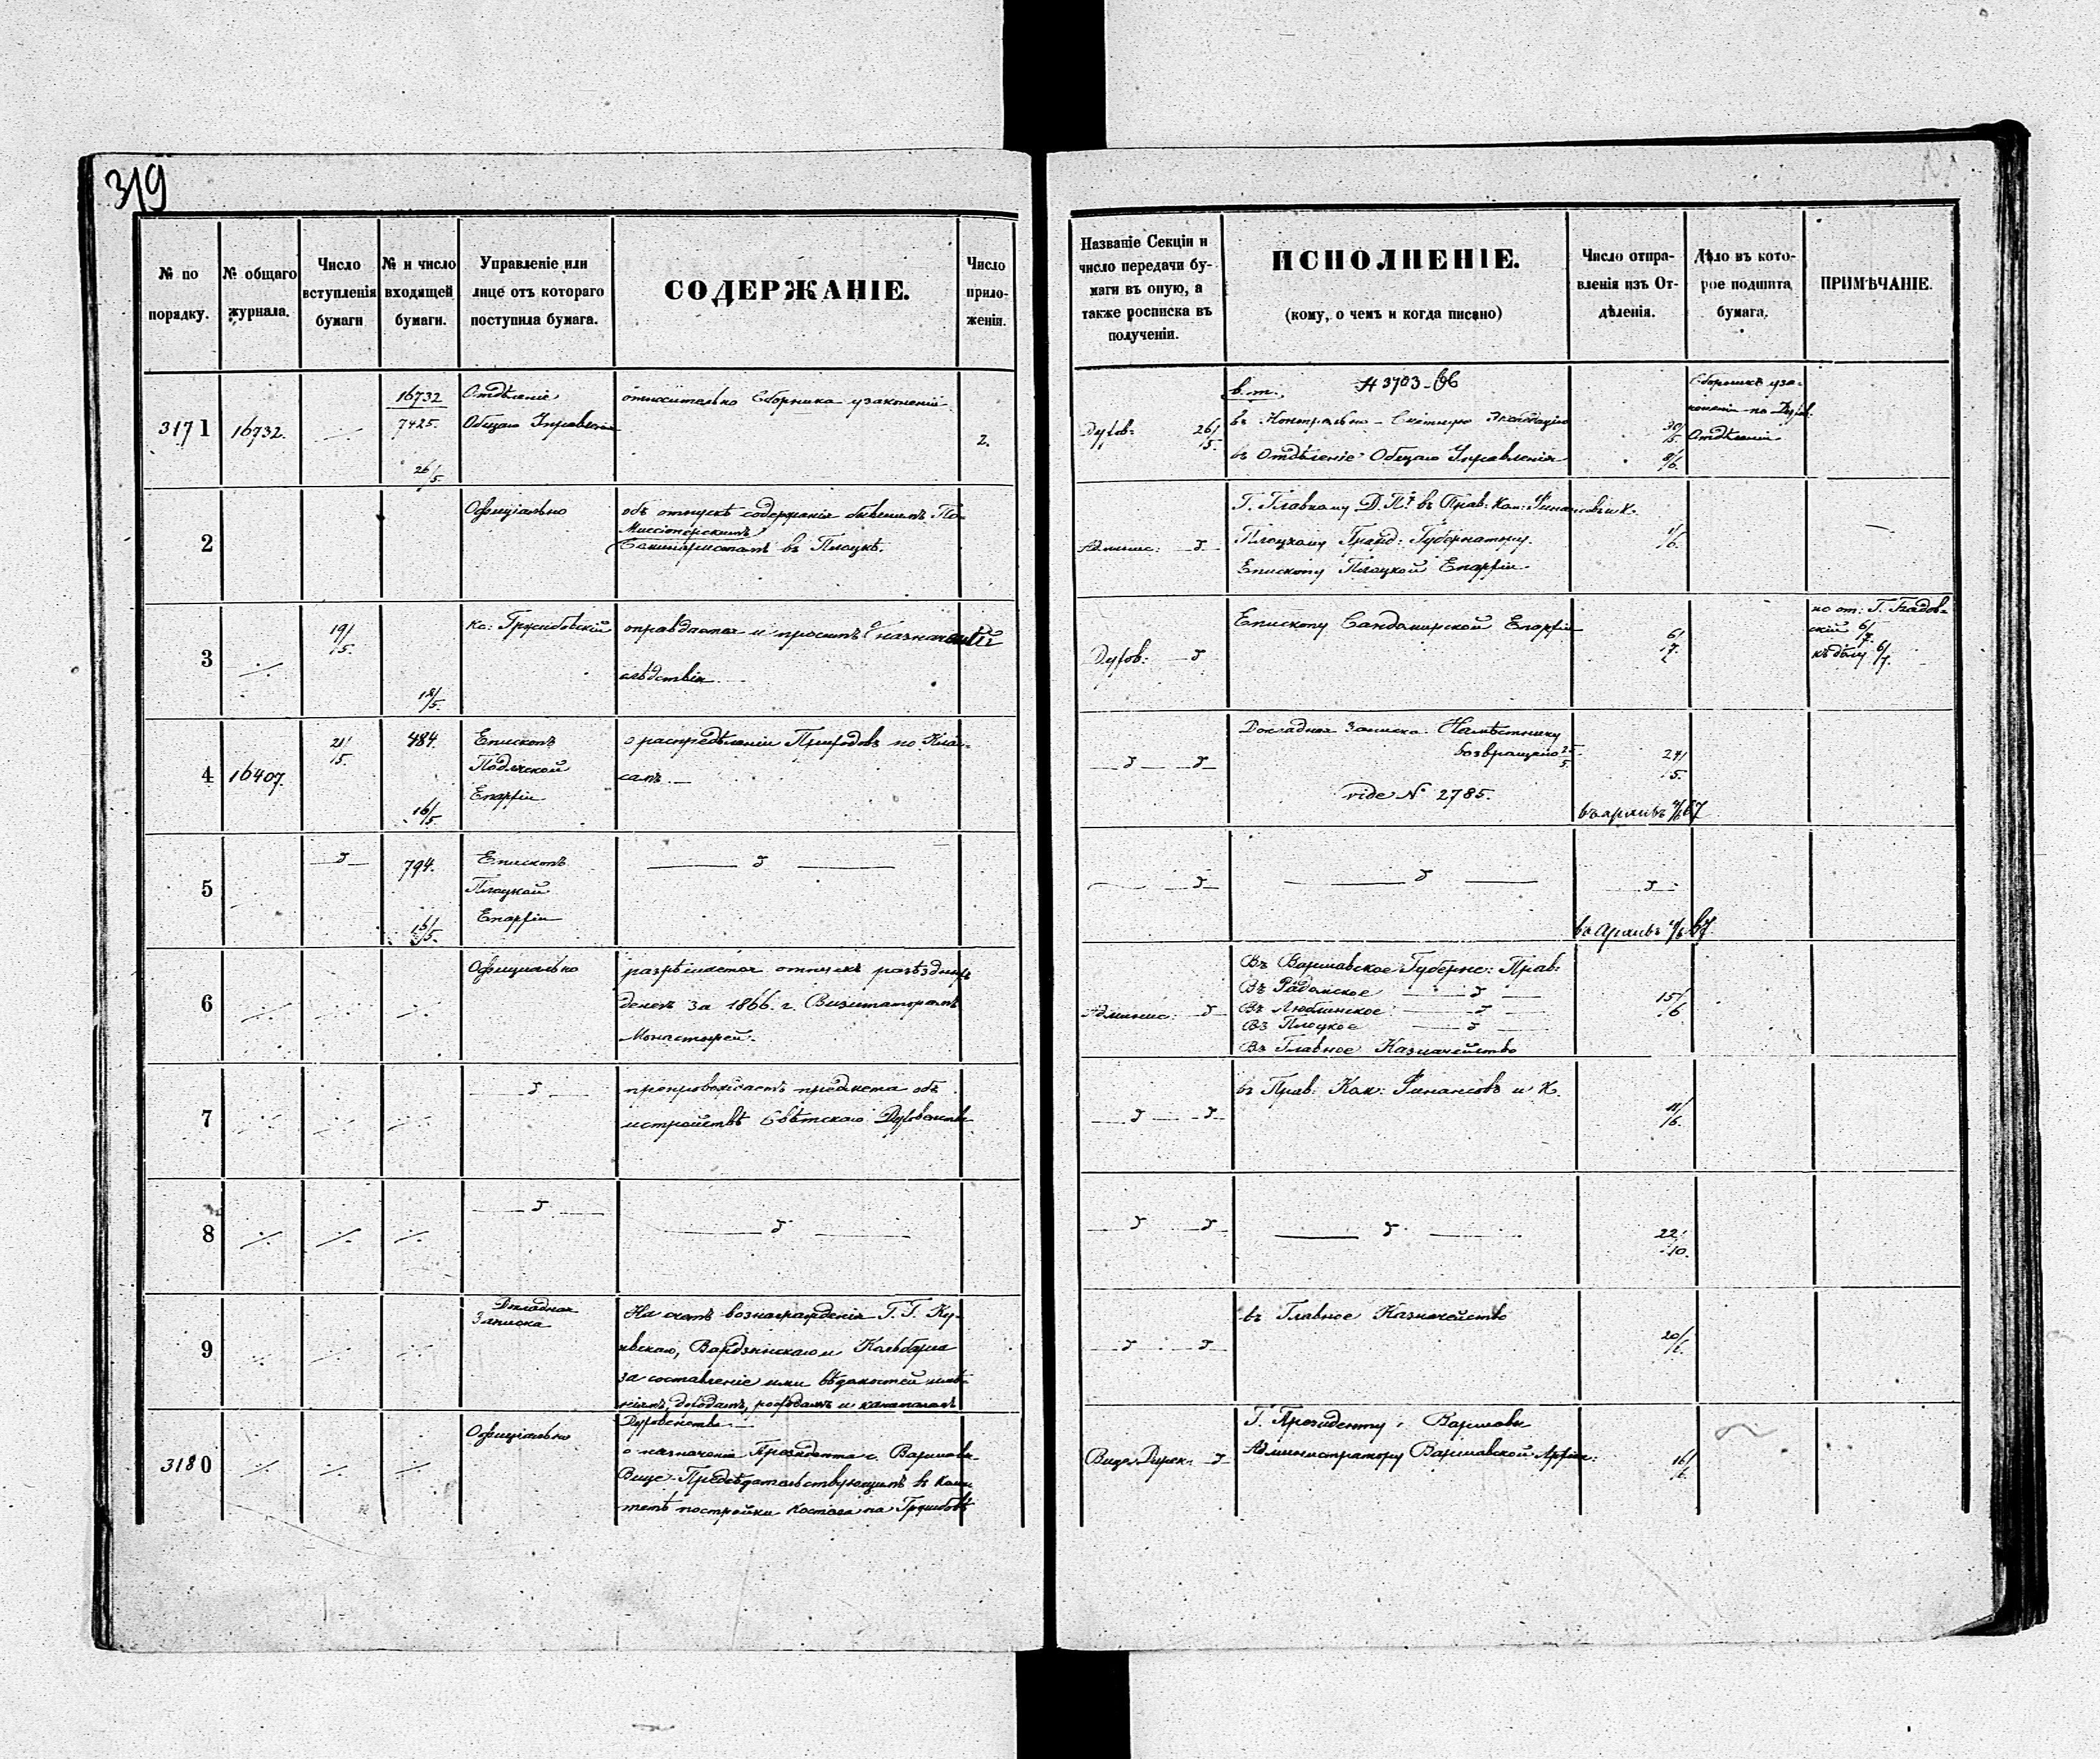 319
№ по порядку.
№ общаго журнала.
Число вступленія бумаги
№ и число входящей бумаги.
Управленіе или лице отъ котораго поступила бумага.
СОДЕРЖАНІЕ.
Число прило-женія.
Названіе Секціи и число передачи бу-маги въ оную, а также росписка въ полученіи.
ИСПОЛНЕНІЕ.
(кому, о чемъ и когда писано)
Число отпра-вленія изъ От-дѣленія.
Дѣло въ кото-рое подшита бумага.
ПРИМѢЧАНІЕ.
3171
16732.
16732
7425.
26/5
Отдѣленіе
Общаго Управленія
относительно Сборника узаконеній
2.
Духов: 26/5.
в. т. № 3703-66
въ Контрольно-Счетную Экспедицію 30/5.
въ Отдѣленіе Общаго Управленія 8/6.
Сборникъ уза-
коненій по Духов.
Отдѣленію
2
Офиціально
объ отпускѣ содержанія бывшимъ По-
Миссіонерскимъ
Семинаристамъ въ Плоцкѣ.
Админис:
Г. Главному Д. П. въ Прав: Ком: Финансовъ и К.
Плоцкому Гражд: Губернатору.
Епископу Плоцкой Епархіи
3
19/5.
18/5.
Кс: Гржибовскій
оправдается и проситъ о назначеніи
слѣдствія
Духов:
Епископу Сандомирской Епархіи
6/7.
къ дѣлу 6/7.
4
16407.
21/5.
484.
16/5.
Епископъ
Подляской
Епархіи
о распредѣленіи Приходовъ по Клас-
самъ
Докладная Записка Намѣстнику
возвращено
vide № 2785.
27/5.
въ архивъ
67
5
794.
15/5.
Епископъ
Плоцкой
Епархіи
въ Архивъ
67
6
Офиціально
разрѣшается отпускъ разъѣздныхъ
денегъ за 1866 г. Визитаторамъ
Монастырей.
Админис:
Въ Варшавское Губернс: Прав:
Въ Радомское
Въ Люблинское
Въ Плоцкое
Въ Главное Казначейство
15/6
7
препровождаетъ предмета объ
устройствѣ Свѣтскаго Духовенства
въ Прав: Ком: Финансовъ и К.
11/6.
8
22/10.
9
Докладная
Записка
На счетъ вознагражденія Г. Г. Ку-
и Кольберга
за составленіе ими вѣдомостей имѣ-
ніямъ, доходамъ, расходамъ и капиталамъ
Духовенства
въ Главное Казначейство
20/6.
3180
Офиціально
о назначеніи Президента г. Варшавы
Вице-Предсѣдательствующимъ въ Коми-
тетѣ постройки костела на Гржибовѣ
Вице-Дирек:
Г. Президенту г. Варшавы
Администратору Варшавской Архіеп:
16/6.